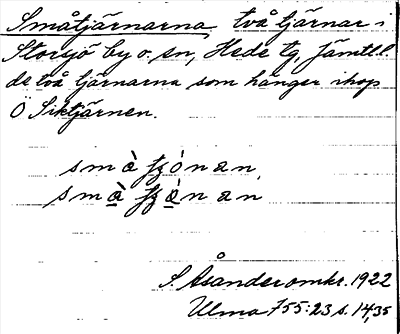 Småtjärnarna, två tjärnar i
Storsjö by o. sn, Hede tg, Jämtl. l.
de två tjärnarna som hänger ihop
Ö Siktjärnen.
S. Åsander omkr. 1922
Ulma 755:23 s. 14, 35